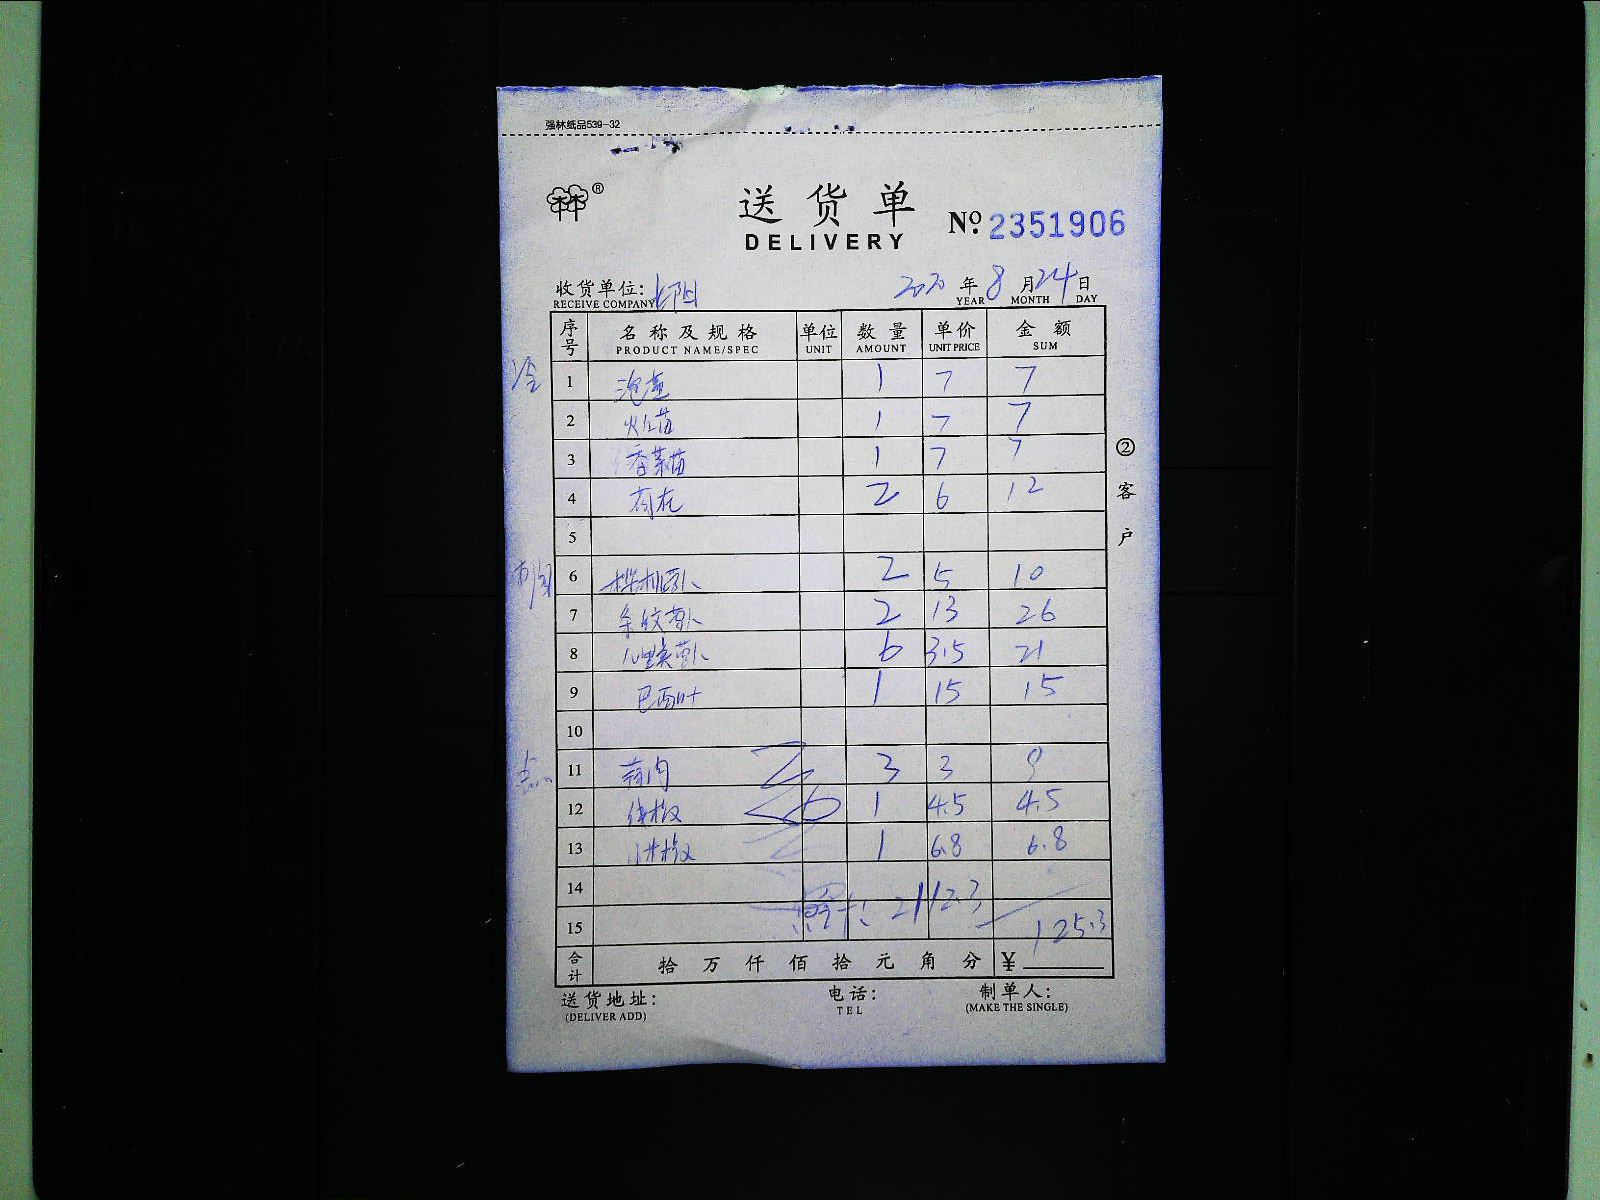 强林纸品539-32
®
送货单
DELIVERY
№: 2351906
收货单位:
RECEIVE COMPANY
2020年8月24日
YEAR MONTH DAY
序号 名称及规格 单位 数量 单价 金额
PRODUCT NAME/SPEC UNIT AMOUNT UNIT PRICE SUM
1 1 7 7
2 苗 1 7 7
3 香菜苗 1 7 7
4 2 6 12
5
6 萝卜 2 5 10
7 萝卜 2 13 26
8 萝卜 6 3.5 21
9 巴西叶 1 15 15
10
11 蒜肉 3 3 9
12 1 4.5 4.5
13 小米椒 1 6.8 6.8
14
15 125.3
合计 拾万仟佰拾元角分 ¥
②客户
送货地址:
(DELIVER ADD)
电话:
TEL
制单人:
(MAKE THE SINGLE)